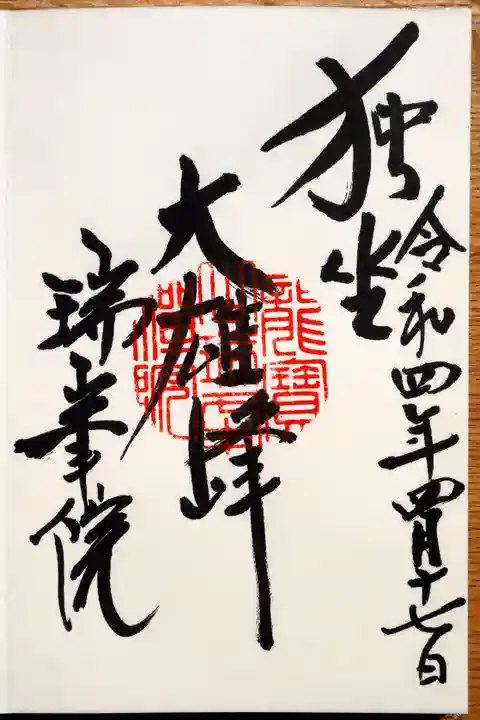 令和四年四月十七日
独坐
大雄峰
瑞峯院
龍寶